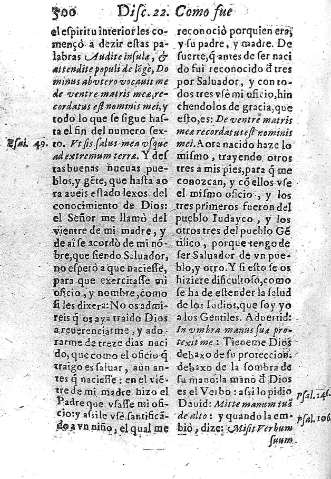 500 Disc. 22. Como fue
el espiritu interior les co-
mençò a dezir estas pa-
labras Audite insulæ, &
attendite populi de lōge, Do
minus ab vtero vocauit me
de ventre matris meæ, re-
cordatus est nominis mei, y
todo lo que se sigue has-
ta el fin del numero sex-
to. Vt sis salus mea vsque
ad extremum terræ. Y des-
tas buenas nueuas pue-
blos, y gēte, que hasta ao
ra aueis estado lexos del
conocimiento de Dios:
el Señor me llamò del
vientre de mi madre, y
de ai se acordò de mi nō-
bre, que siendo Saluador,
no esperò a que naciesse,
para que exercitasse mi
oficio, y nombre, como
si les dixera: No os admi-
reis q̄ os aya traido Dios
a reuerenciarme, y ado-
rarme de treze dias naci
do, que como el oficio q̄
traigo es saluar, aun an-
tes q̄ naciesse: en el viē-
tre de mi madre hizo el
Padre que vsasse mi ofi-
cio: y assi le vsè santificā-
do a vn niño, el qual me
Esai. 49.
reconociò por quien era;
y su padre, y madre. De
suerte, q̄ antes de ser naci
do fui reconocido d̄ tres
por Saluador, y con ro-
dos tres vsè mi oficio, hin
chendolos de gracia, que
esto, es: De ventre matris
meæ recordatus est nominis
mei. Aora nacido haze lo
mismo, trayendo otros
tres a mis pies, para q̄ me
conozcan, y cō ellos vse
el mismo oficio, y los
tres primeros fueron del
pueblo Iudayco, y los
otros tres del pueblo Gē
tilico, porque tengo de
ser Saluador de vn pue-
blo, y otro. Y si esto se os
hiziere dificultoso, como
se ha de estender la salud
de los Iudios, que soy yo
a los Gentiles. Aduertid:
In vmbra manus suæ pro-
texit me: Tieneme Dios
debaxo de su proteccion.
debaxo de la sombra de
su mano: la mano d̄ Dios
es el Verbo: assi lo pidio
Dauid: Mitte manum tuā
de alto: y quando la em-
biò, dize: Misit Verbum
suum.
Psal. 146.
Psal. 106.